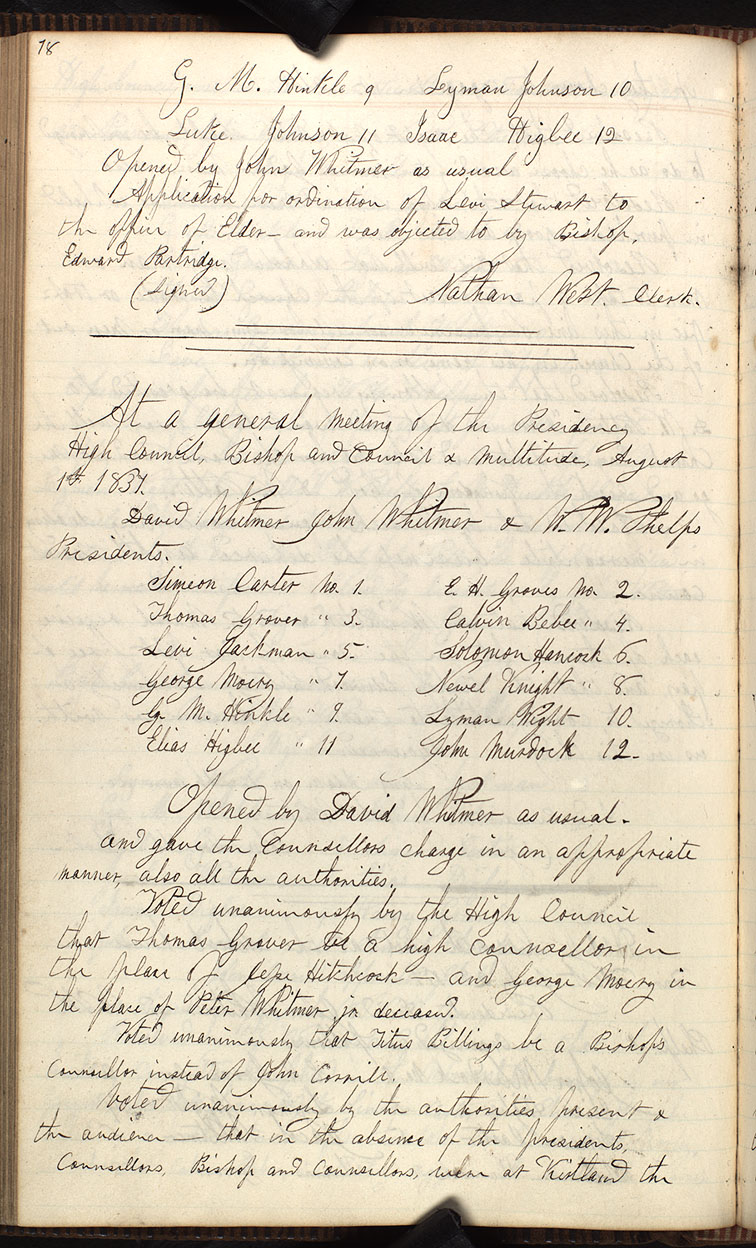 78
G. M. Hinkle 9 Lyman Johnson 10
Luke Johnson 11 Isaac Higbee 12
Opened by John Whitmer as usual
Application for ordination of Levi Stewart to
the office of Elder — and was objected to by Bishop,
Edward Partridge.
(Signed) Nathan West. Clerk.
At a general meeting of the Presidency
High Council, Bishop and Council & multitude, August
1st 1837.
David Whitmer John Whitmer & W. W. Phelps
Presidents.
Simeon Carter No. 1. E. H. Groves No. 2.
Thomas Grover " 3. Calvin Bebee " 4.
Levi Jackman " 5. Solomon Hancock 6.
George Moery " 7. Newel Knight " 8.
G. M. Hinkle " 9. Lyman Wight 10.
Elias Higbee " 11 John Murdock 12.
Opened by David Whitmer as usual.
and gave the Counsellors charge in an appropriate
manner, also all the authorities.
Voted unanimously by the High Council
that Thomas Grover be a high counsellor in
the place of Jesse Hitchcock — and George Moery in
the place of Peter Whitmer jr deceased.
Voted unanimously that Titus Billings be a Bishops
Counsellor instead of John Corrill.
Voted unanimously by the authorities present &
the audience — that in the absence of the presidents,
Counsellors, Bishop and Counsellors, were at Kirtland the